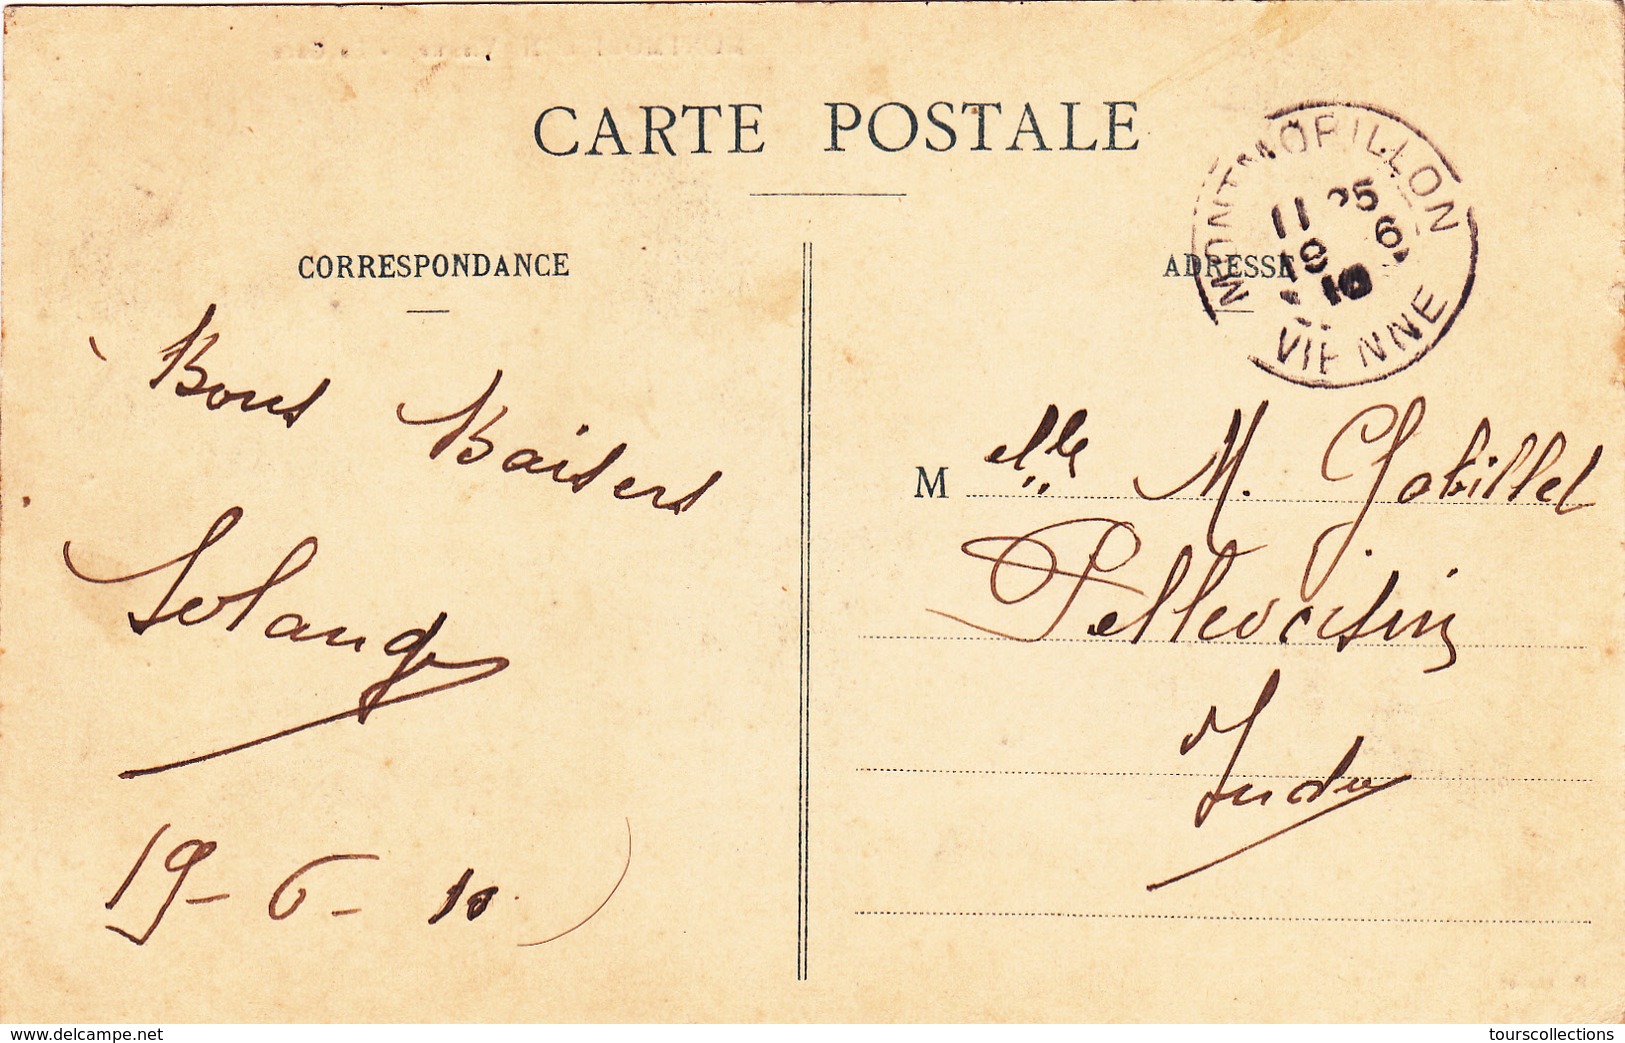 CARTE POSTALE
CORRESPONDANCE
ADRESSE
MONTMORILLON
11 25
19 6
10
VIENNE
Bons Baisers
Solange
19-6-10
M elle M. Gobillet
Pellevoisin
Indre
www.delcampe.net
tourscollections